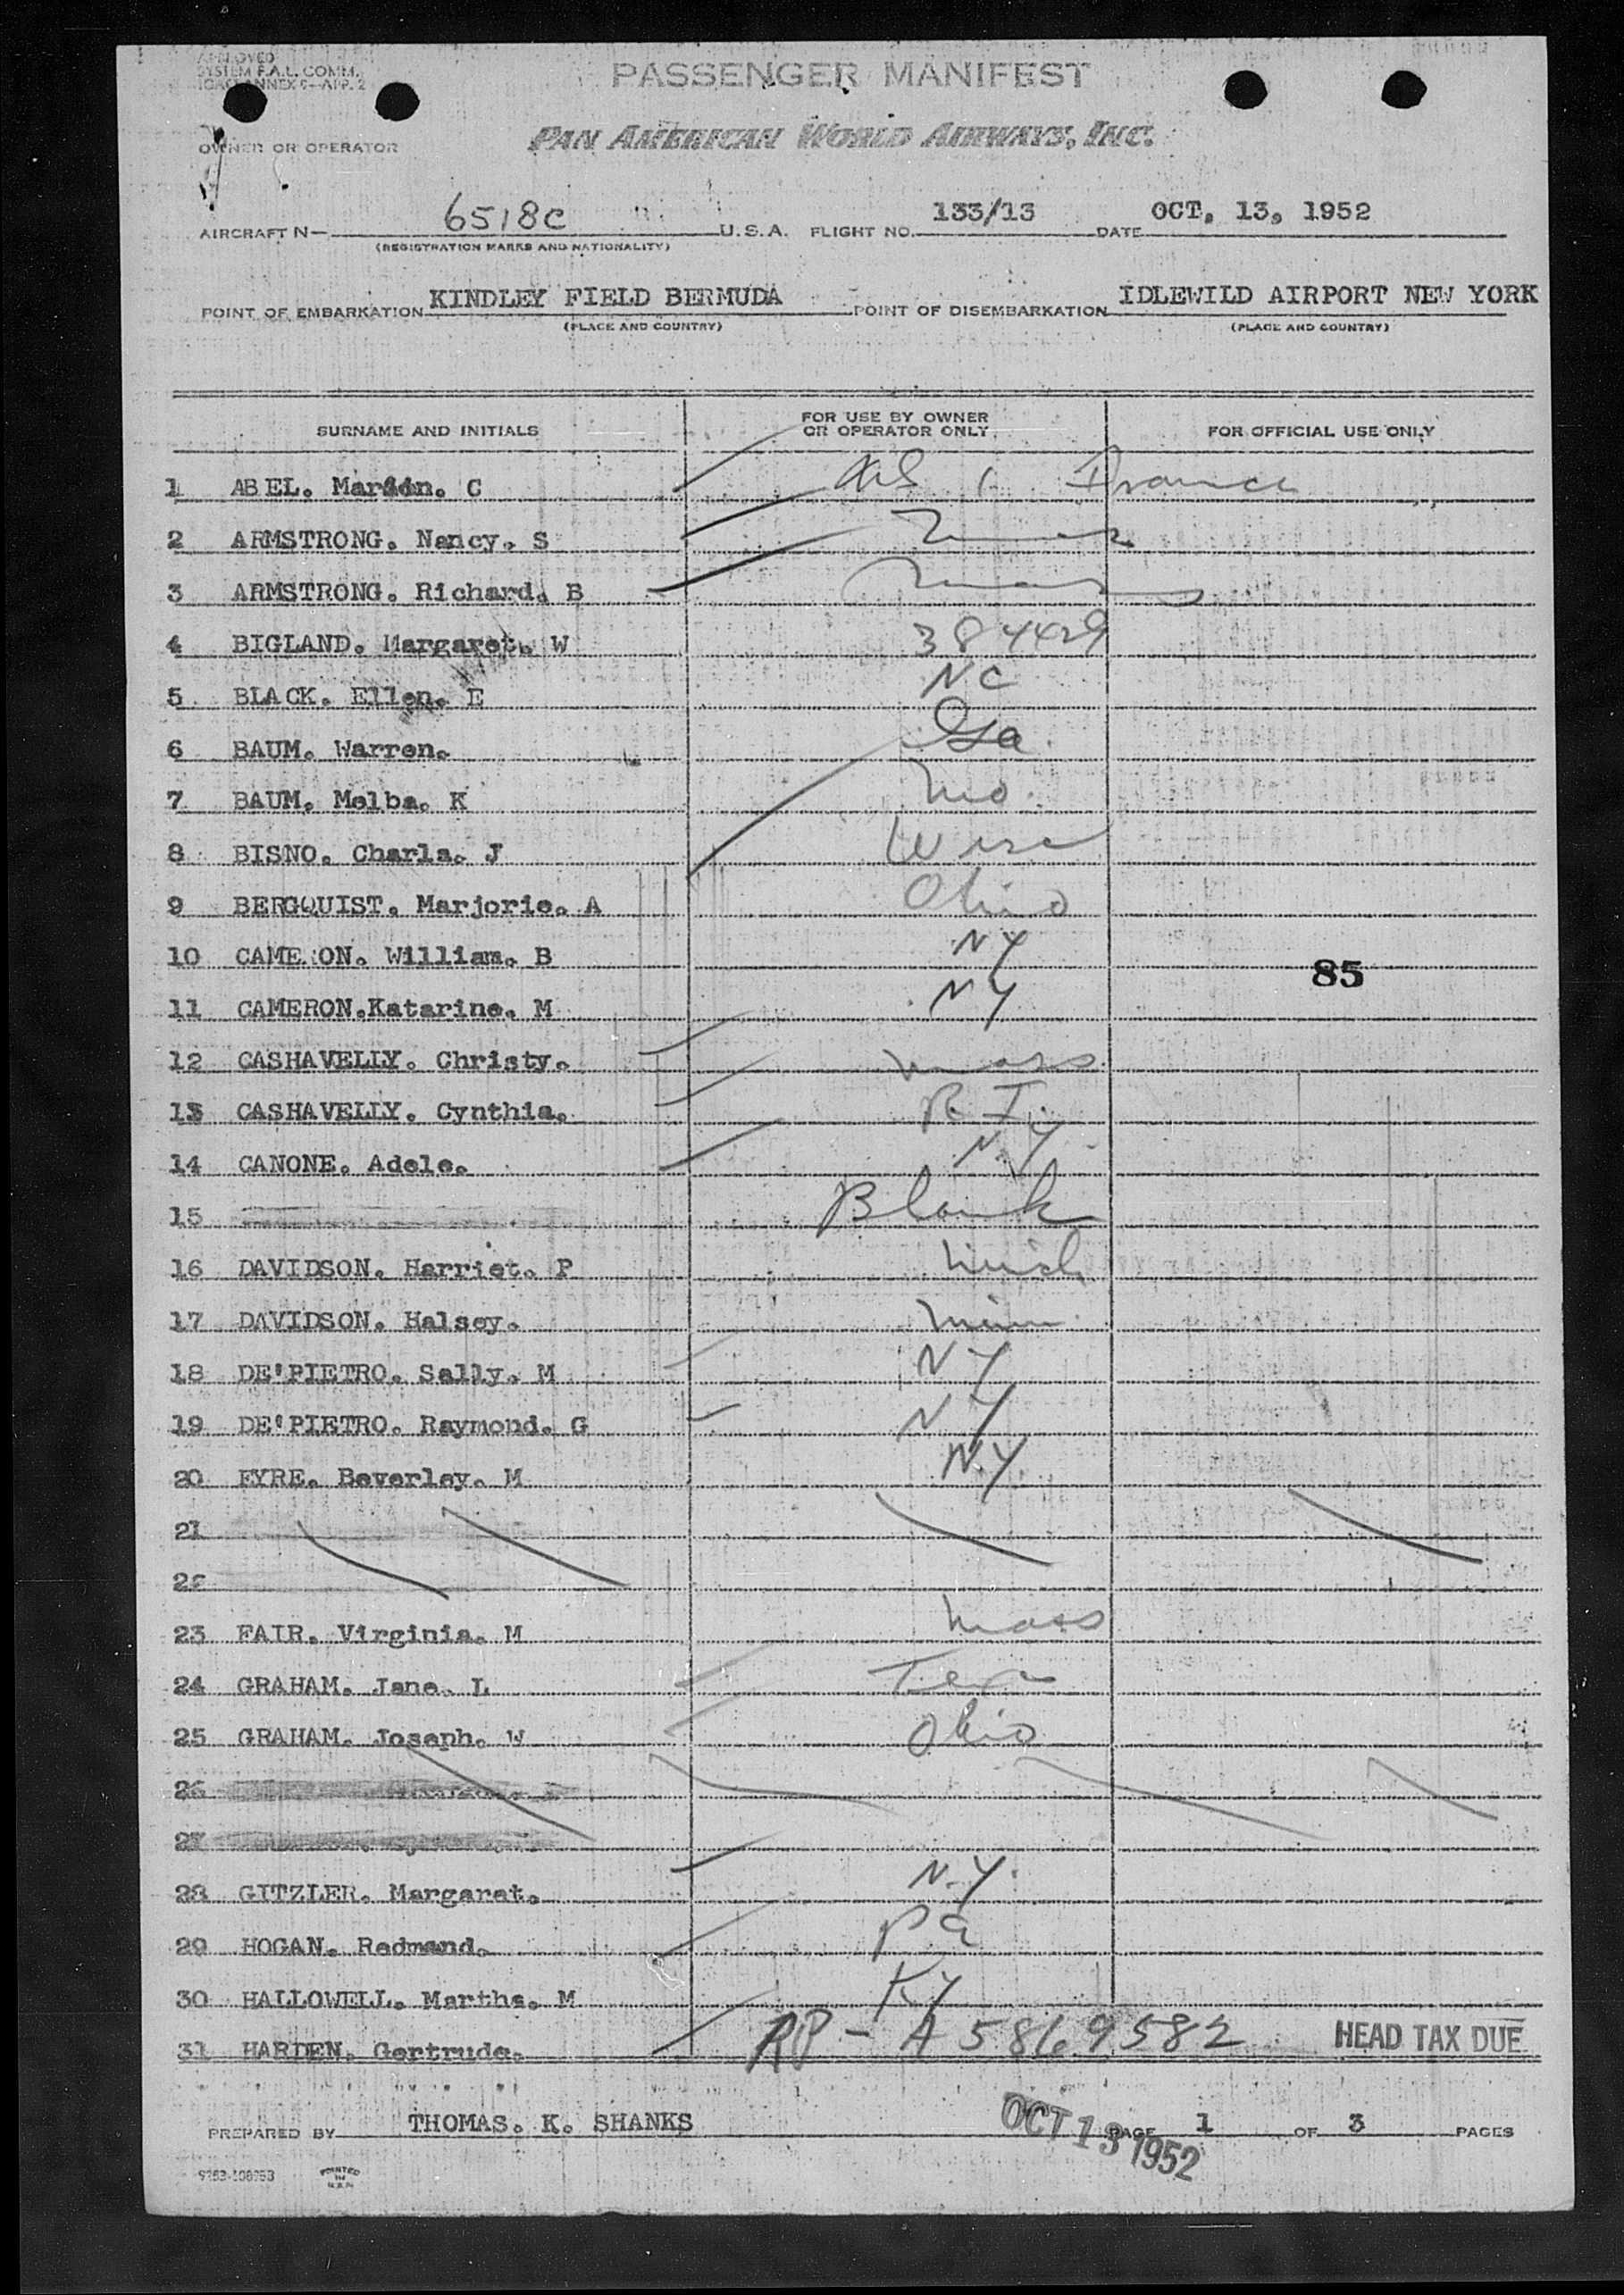 APPROVED
SYSTEM F.A.L. COMM.
ICAO ANNEX 9—APP. 2
PASSENGER MANIFEST
PAN AMERICAN WORLD AIRWAYS, INC.
OWNER OR OPERATOR
AIRCRAFT N— 6518C U.S.A. FLIGHT NO. 133/13 DATE OCT. 13, 1952
(REGISTRATION MARKS AND NATIONALITY)
POINT OF EMBARKATION KINDLEY FIELD BERMUDA POINT OF DISEMBARKATION IDLEWILD AIRPORT NEW YORK
(PLACE AND COUNTRY) (PLACE AND COUNTRY)
SURNAME AND INITIALS FOR USE BY OWNER OR OPERATOR ONLY FOR OFFICIAL USE ONLY
1 ABEL. C France
2 ARMSTRONG. Nancy. S
3 ARMSTRONG. Richard. B
4 BIGLAND. Margaret. W 384429
5 BLACK. Ellen. E NC
6 BAUM. Warren. Ga
7 BAUM. Melba. K Mo.
8 BISNO. Charla. J Wisc
9 BERGQUIST. Marjorie. A Ohio
10 CAMERON. William. B NY
85
11 CAMERON.Katarine. M NY
12 CASHAVELLY. Christy. Mass
13 CASHAVELLY. Cynthia. R.I.
14 CANONE. Adele. N.Y
15 Blank
16 DAVIDSON. Harriet. P Mich
17 DAVIDSON. Halsey. Minn
18 DE'PIETRO. Sally. M NY
19 DE'PIETRO. Raymond. G NY
20 EYRE. Beverley. M N.Y.
21
22
23 FAIR. Virginia. M Mass
24 GRAHAM. Jane. L Tex
25 GRAHAM. Joseph. W Ohio
26
27
28 GITZLER. Margaret. N.Y.
29 HOGAN. Redmond. Pa
30 HALLOWELL. Martha. M Ky
31 HARDEN. Gertrude. RP - A5869582 HEAD TAX DUE
PREPARED BY THOMAS. K. SHANKS PAGE 1 OF 3 PAGES
OCT 13 1952
PRINTED
IN
U.S.A.